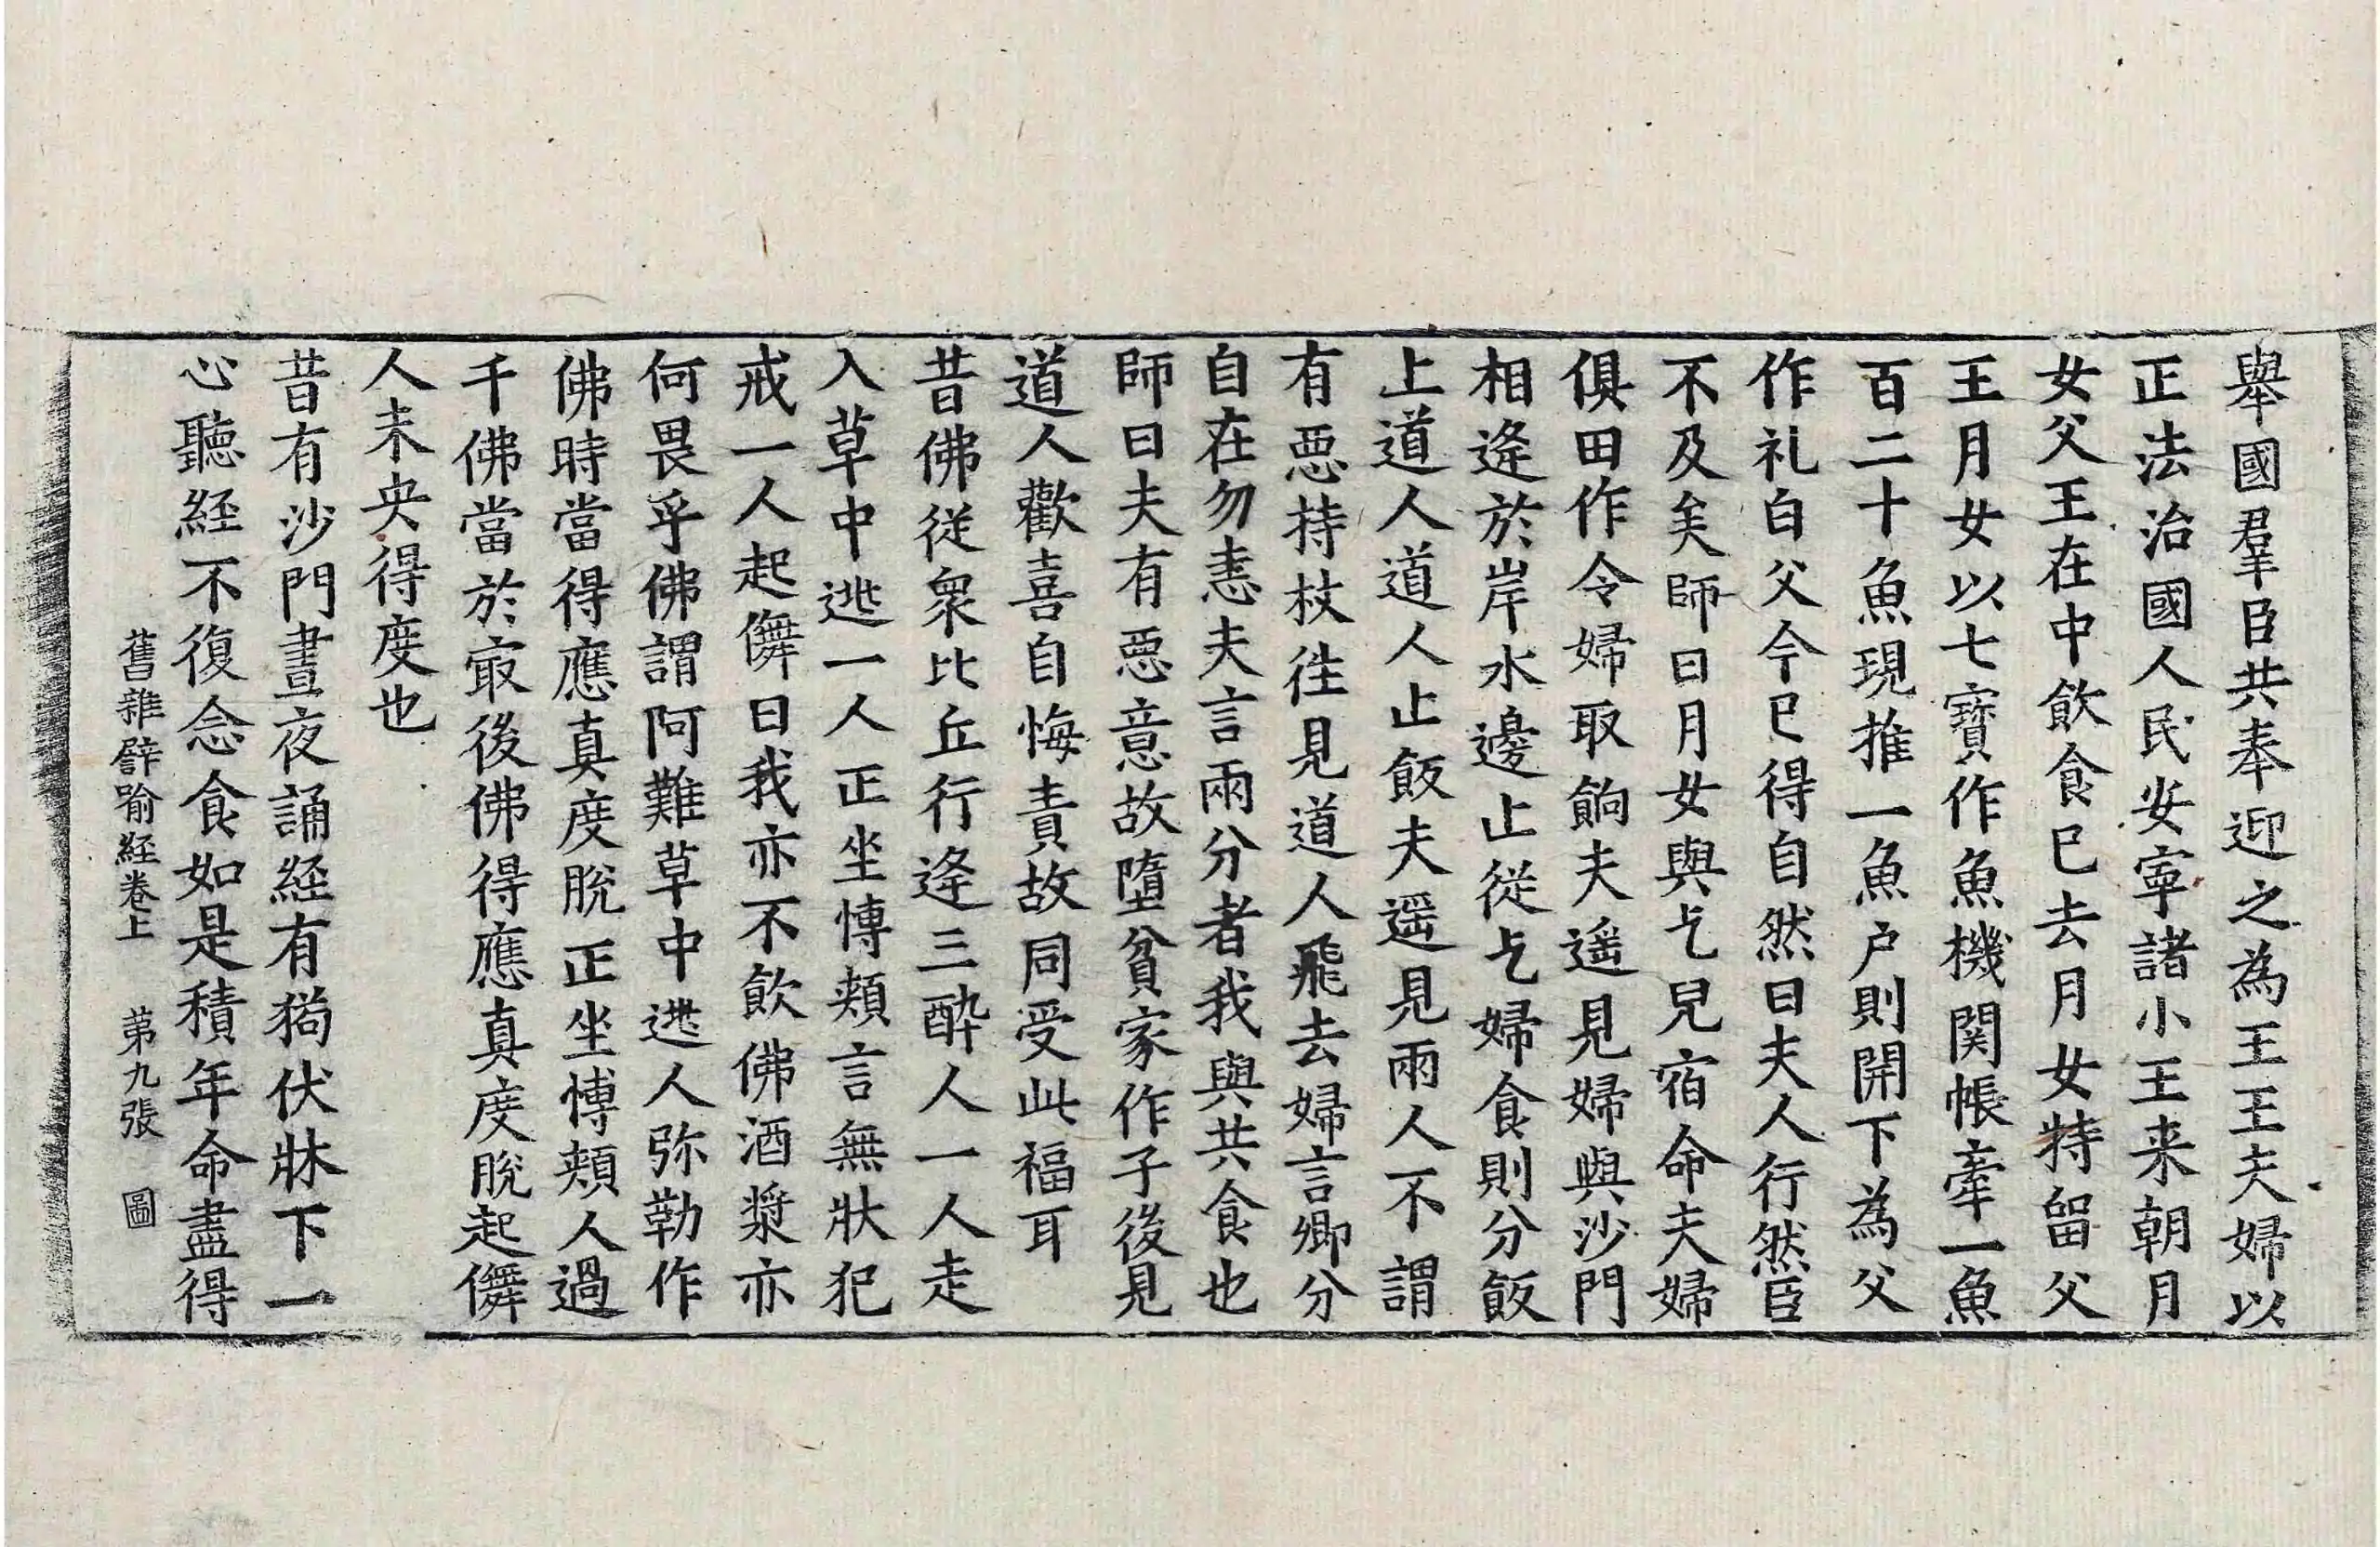 舉國羣臣共奉迎之為王王夫婦以
正法治國人民安寜諸小王来朝月
女父王在中飲食巳去月女特留父
王月女以七寶作魚機関帳牽一魚
百二十魚現推一魚户則開下為父
作礼白父今巳得自然曰夫人行然臣
不及矣師曰月女與乞兒宿命夫婦
俱田作令婦取餉夫遥見婦與沙門
相逢於岸水邊止從乞婦食則分飯
上道人道人止飯夫遥見兩人不謂
有惡持杖徃見道人飛去婦言卿分
自在勿恚夫言兩分者我與共食也
師曰夫有惡意故墮貧家作子後見
道人歡喜自悔責故同受此福耳
昔佛從衆比丘行逢三醉人一人走
入草中逃一人正坐慱頰言無狀犯
戒一人起儛曰我亦不飲佛酒漿亦
何畏乎佛謂阿難草中逃人弥勒作
佛時當得應真度脫正坐慱頰人過
千佛當於㝡後佛得應真度脫起儛
人未央得度也
昔有沙門晝夜誦経有狗伏牀下一
心聽経不復念食如是積年命盡得
舊雜譬喻経卷上 苐九張 圖